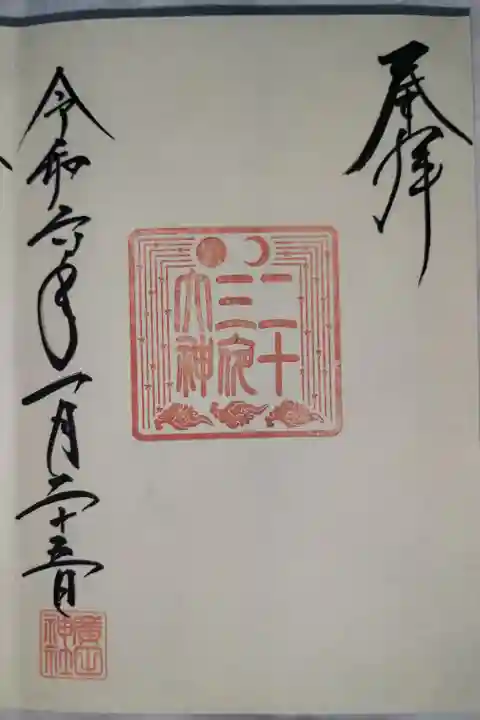 奉拝
二十
三夜
大神
令和六年一月二十三日
廣山
神社